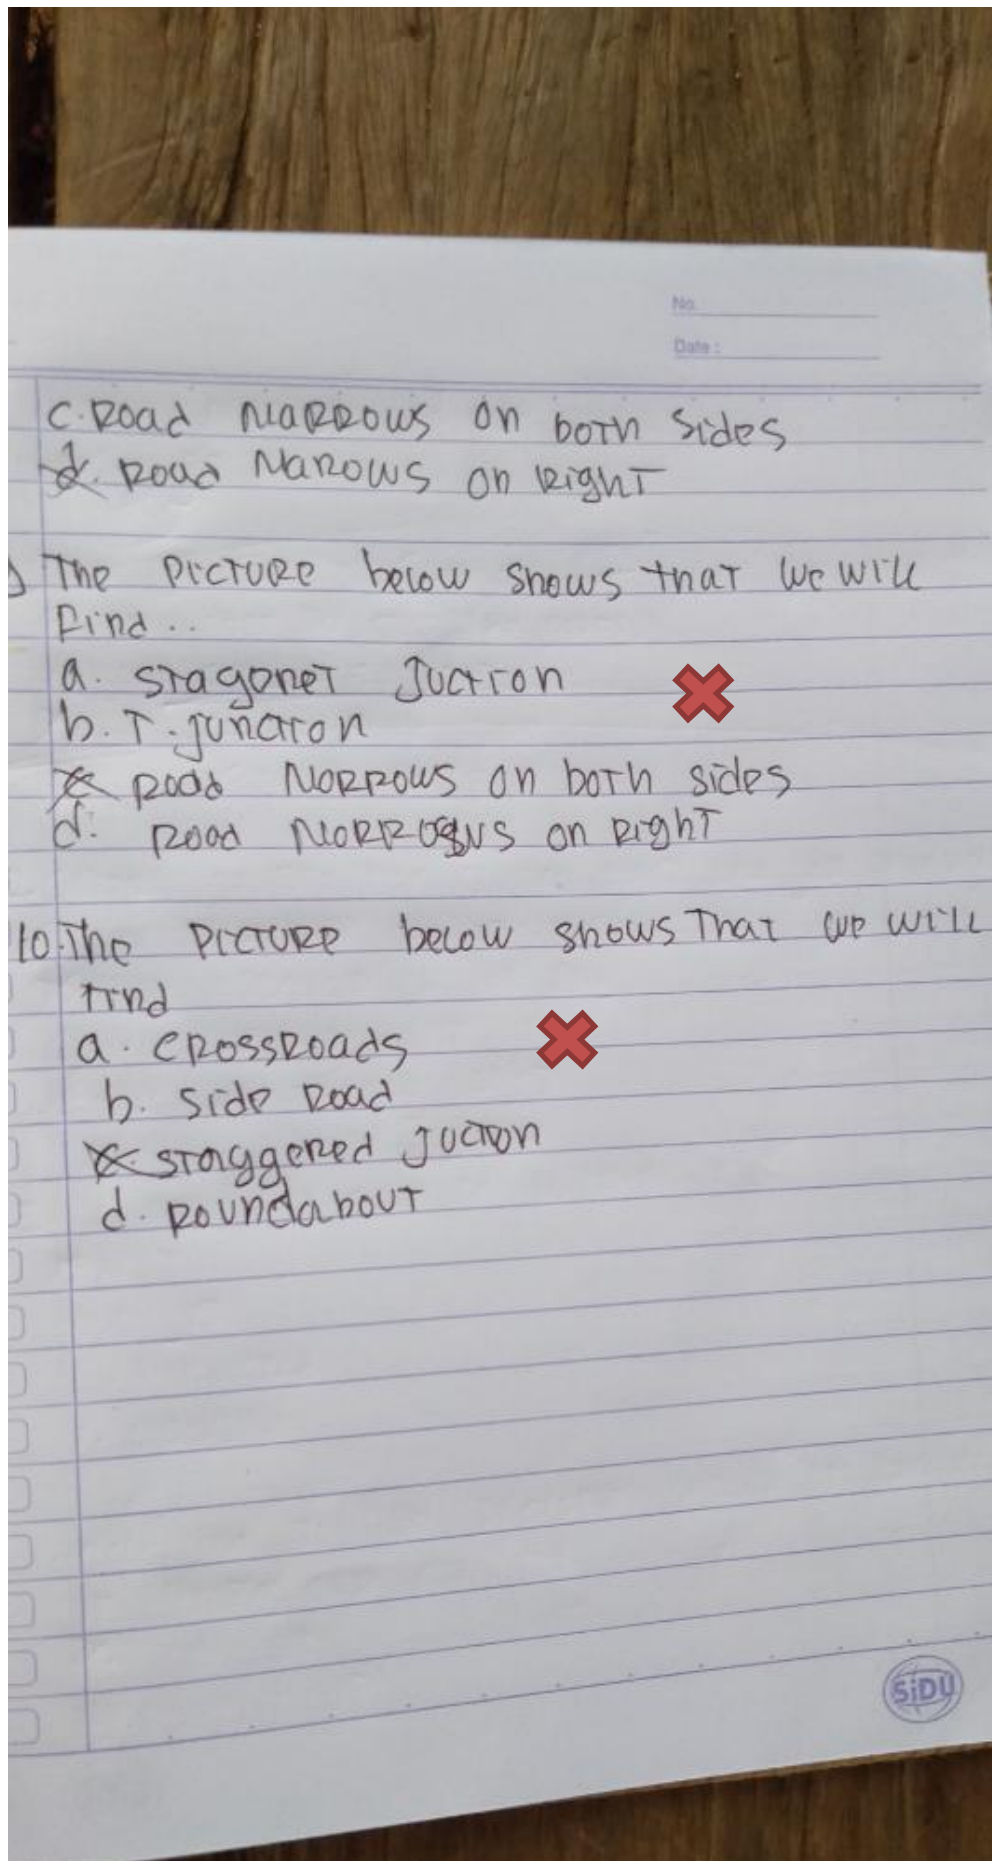 No.
Date :
c. Road NaRROWS on both Sides
d. Road NaROWS on Right
The PICTURE below shows that we will
Find ..
a. stagoneT Juction
b. T. junction
Road NoRROWS on both sides
d. Road on Right
10. The PICTURE below shows That we will
Find
a. CROSSROads
b. side Road
staggered Juction
d. RoundabouT
SiDU